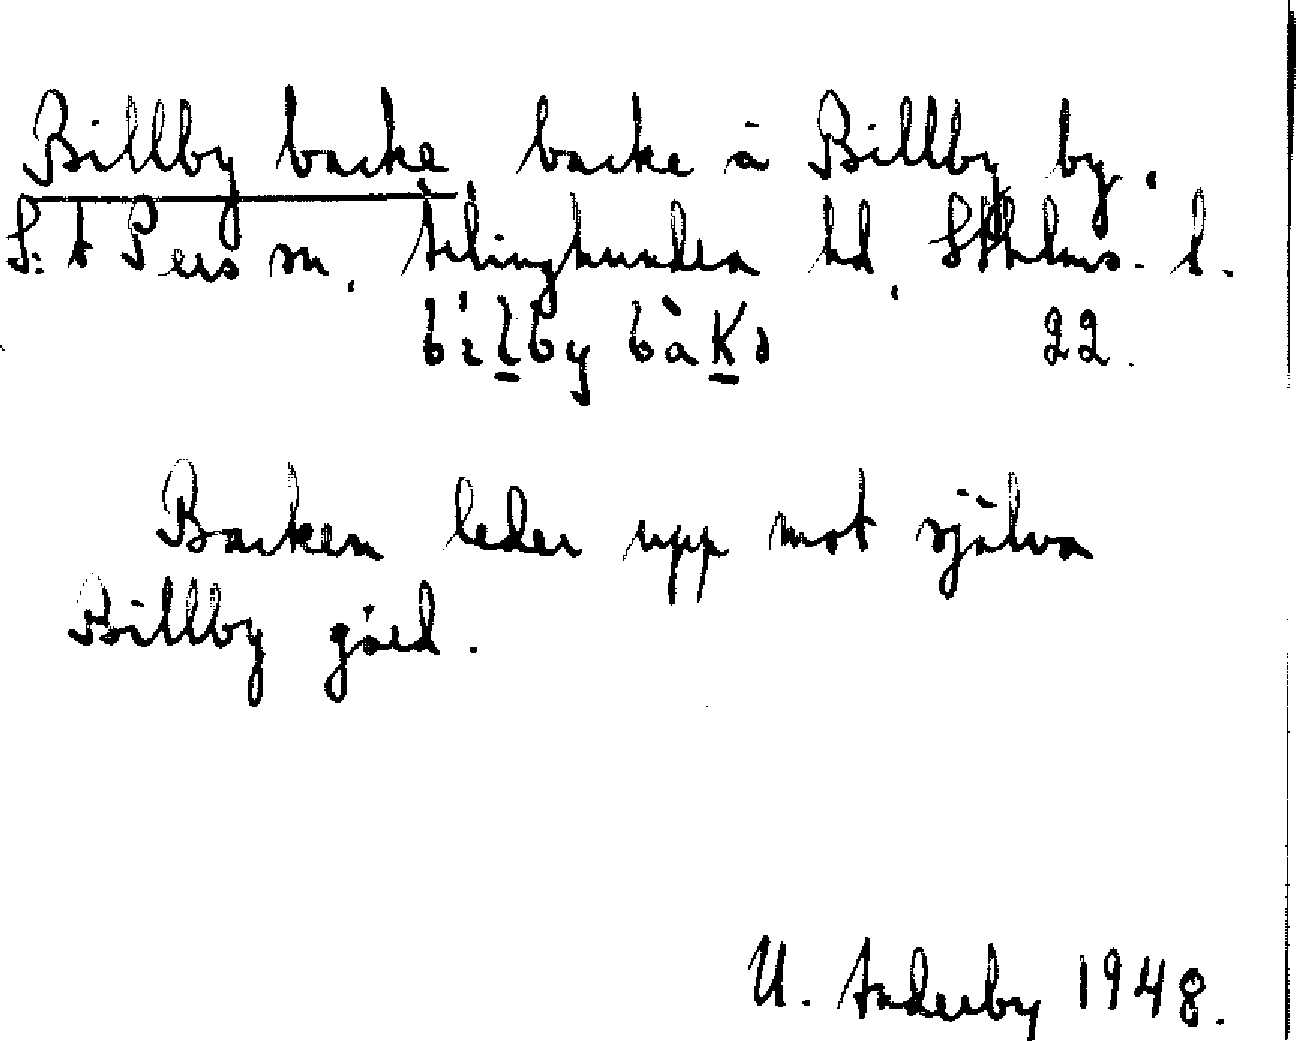 Billby backe backe å Billby by.
S:t Pers sn, Ärlinghundra hd, Sthlms. l.
bìlby bàkə 22.
Backen leder upp mot själva
Billby gård.
U. Anderby 1948.